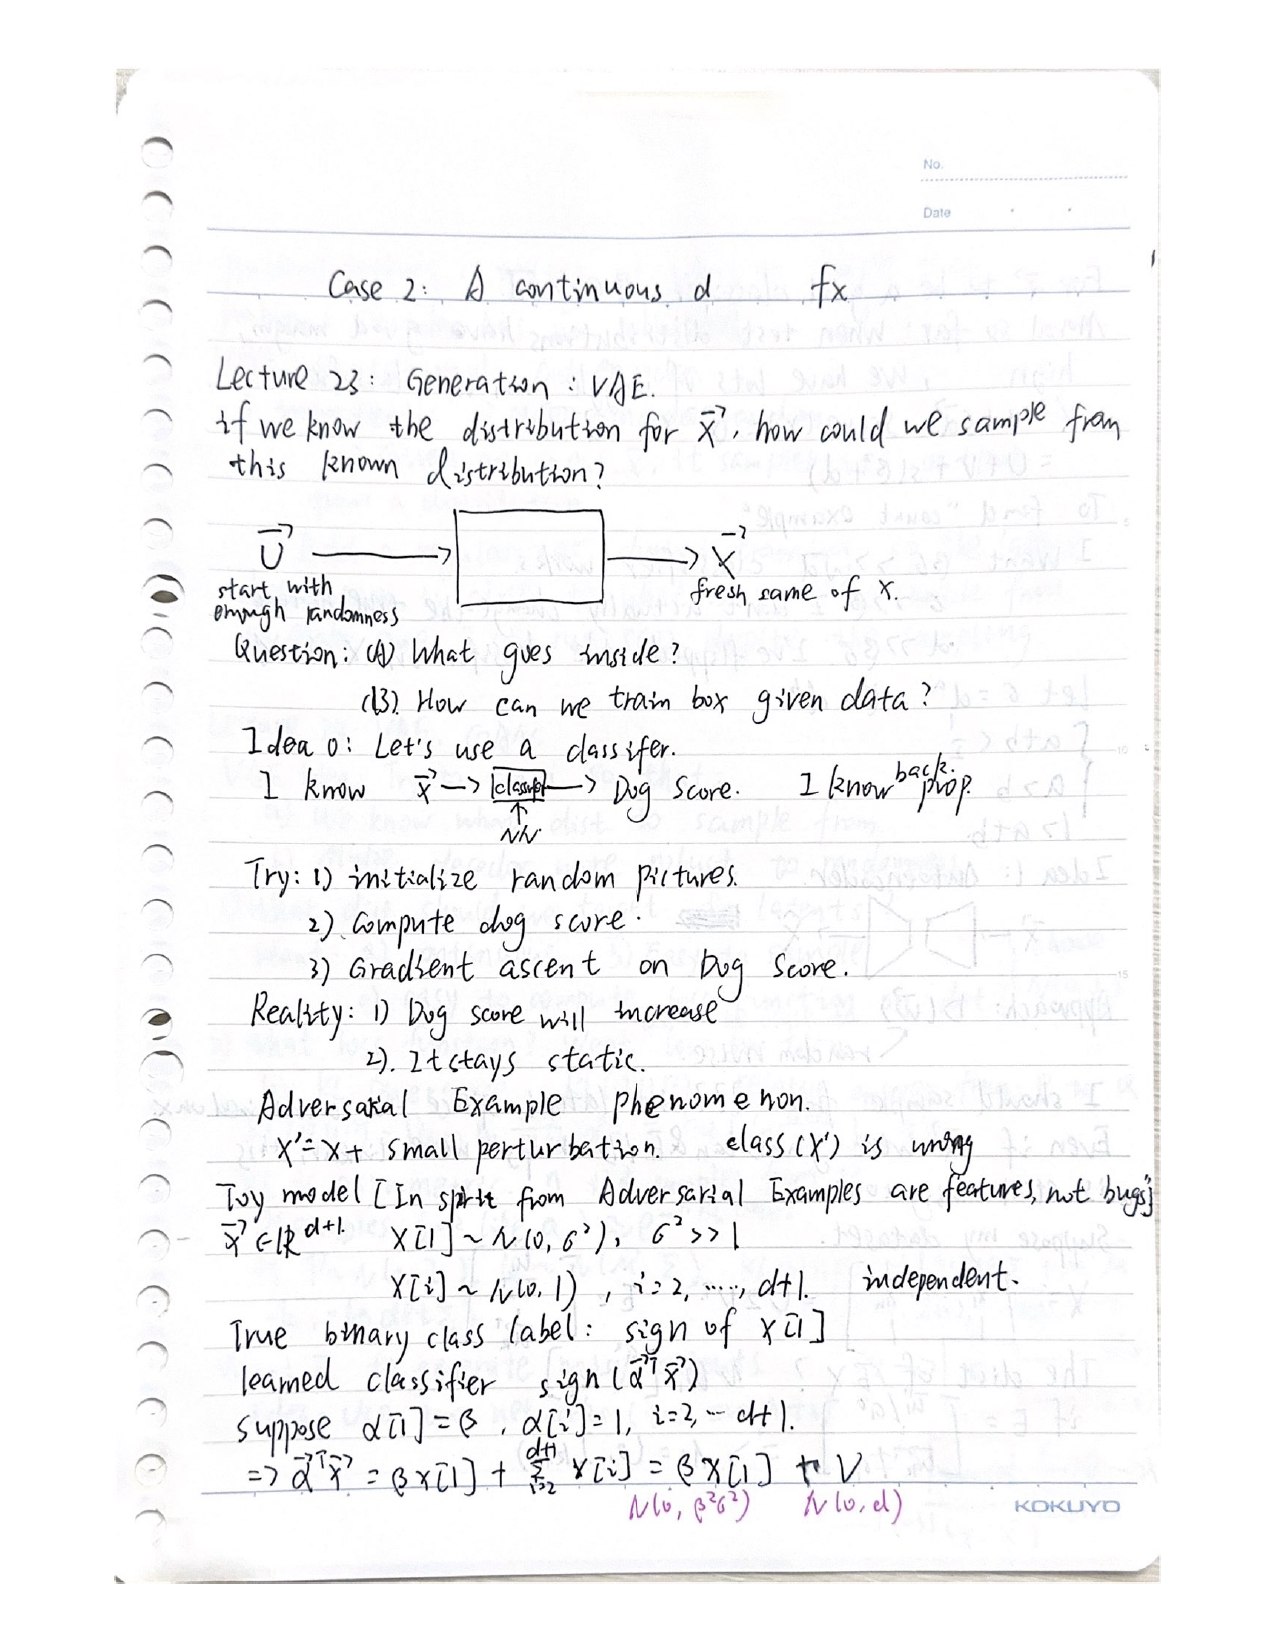 No.
Date
Case 2: A continuous d fx
Lecture 23: Generation: VAE.
if we know the distribution for x⃗, how could we sample from
this known distribution?
U⃗ → → x⃗
start with enough randomness
fresh same of x.
Question: (A) What goes inside?
(B). How can we train box given data?
Idea 0: Let's use a classifer.
I know x⃗ → → Dog Score. I know back. prop.
↑
NN.
Try: 1) initialize random pictures.
2). Compute dog score.
3) Gradient ascent on Dog Score.
Reality: 1) Dog score will increase
2). It stays static.
Adversarial Example phenomenon.
x'=x+ small perturbation. class(x') is wrong
Toy model [In spirit from Adversarial Examples are features, not bugs"]
x⃗ ∈ ℝ^{d+1}. X[1] ~ N(0, σ²), σ² >> 1
X[i] ~ N(0, 1), i=2, ...., d+1. independent.
True binary class label: sign of X[1]
learned classifier sign(α⃗ᵀx⃗)
suppose α[1] = β, α[i]=1, i=2, ... d+1.
=> α⃗ᵀx⃗ = βX[1] + Σ_{i=2}^{d+1} X[i] = βX[1] + V
N(0, β²σ²) N(0, d)
KOKUYO